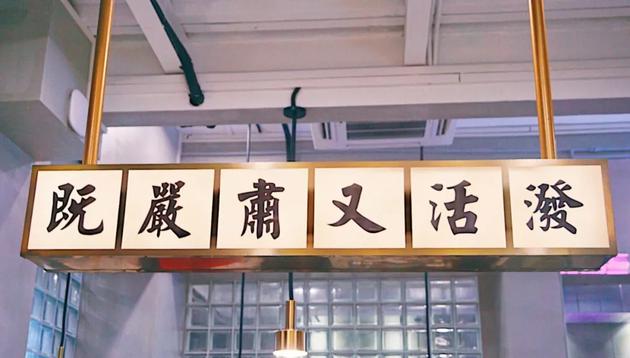 既嚴肅又活潑